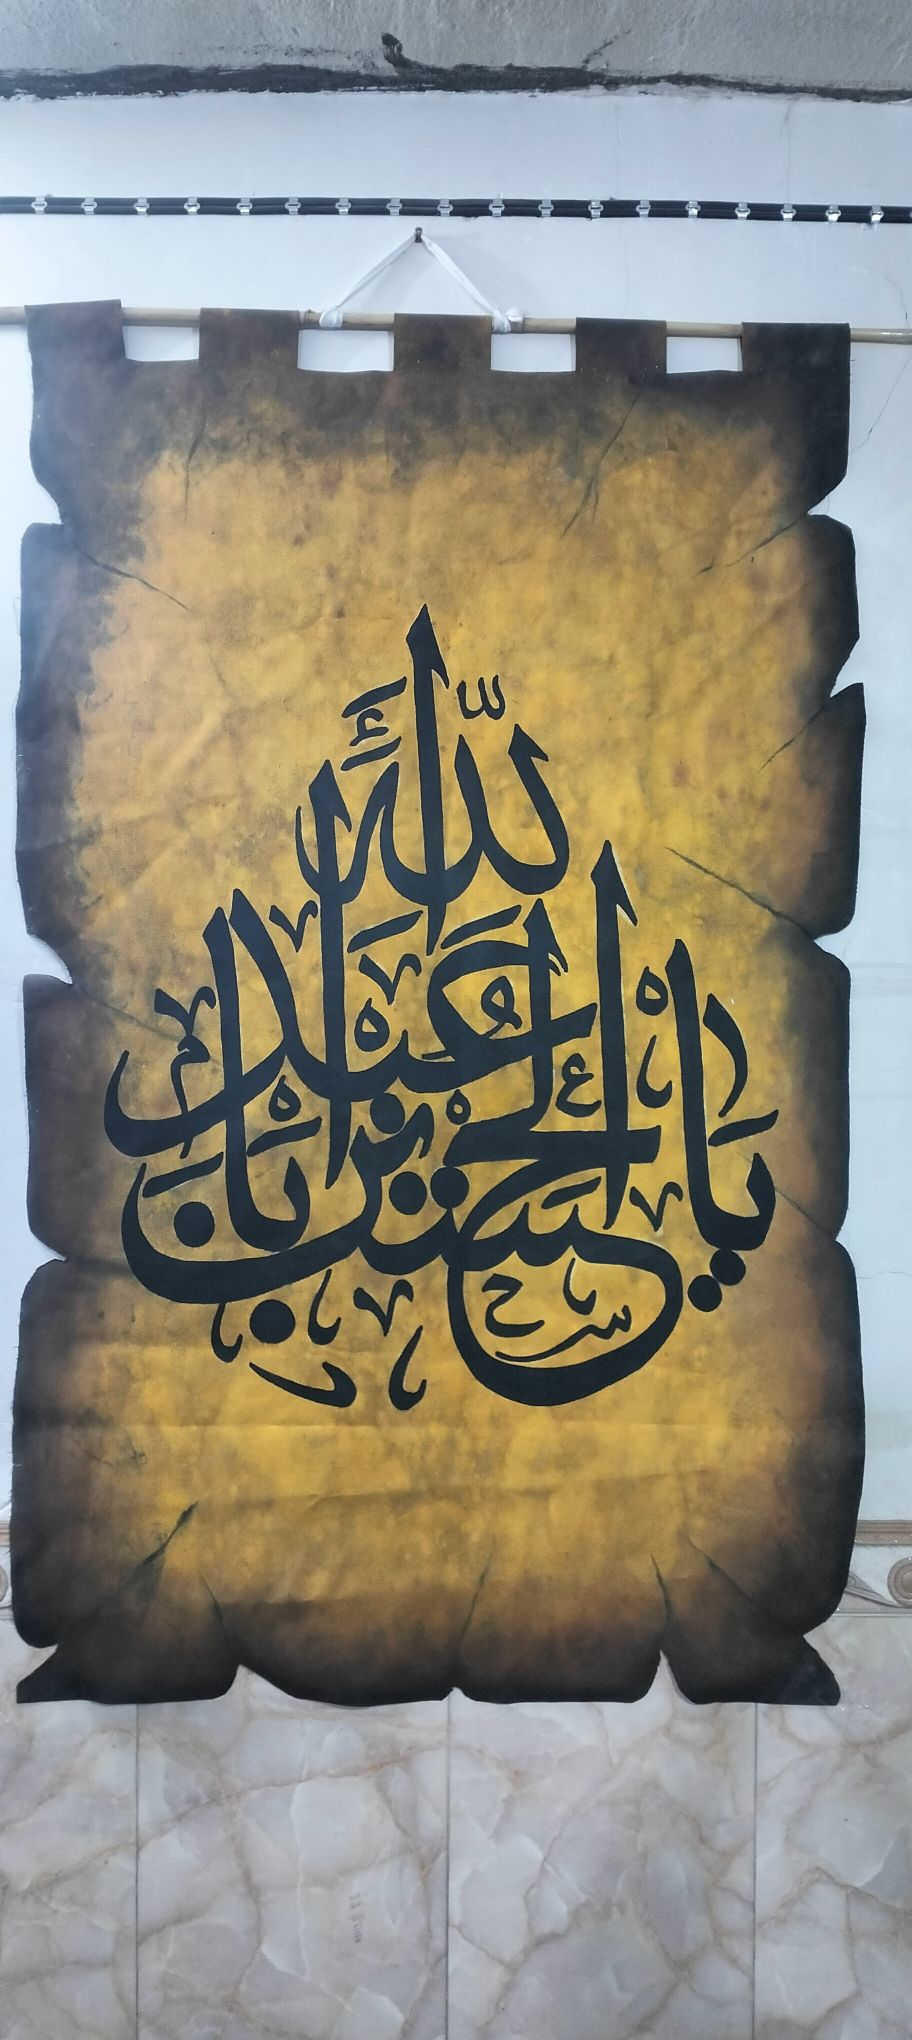 يا أبا عبد الله الحسين